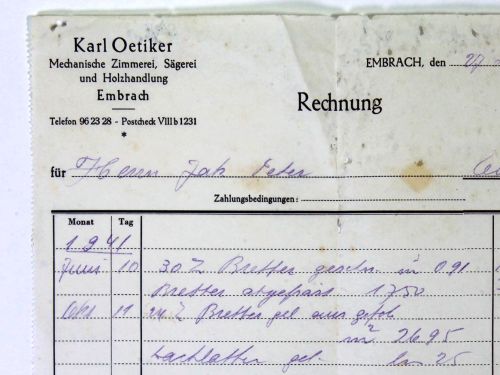 Karl Oetiker
Mechanische Zimmerei, Sägerei
und Holzhandlung
Embrach
Telefon 96 23 28 - Postcheck VIII b 1231
*
EMBRACH, den 27.
Rechnung
für Herrn Jak
Zahlungsbedingungen:
Monat Tag
1941
Juni 10 30 Z Bretter in 0.91
Bretter 17.50
Okt 11 Bretter gel
m² 26.95
Dachlatten gel. lm 25